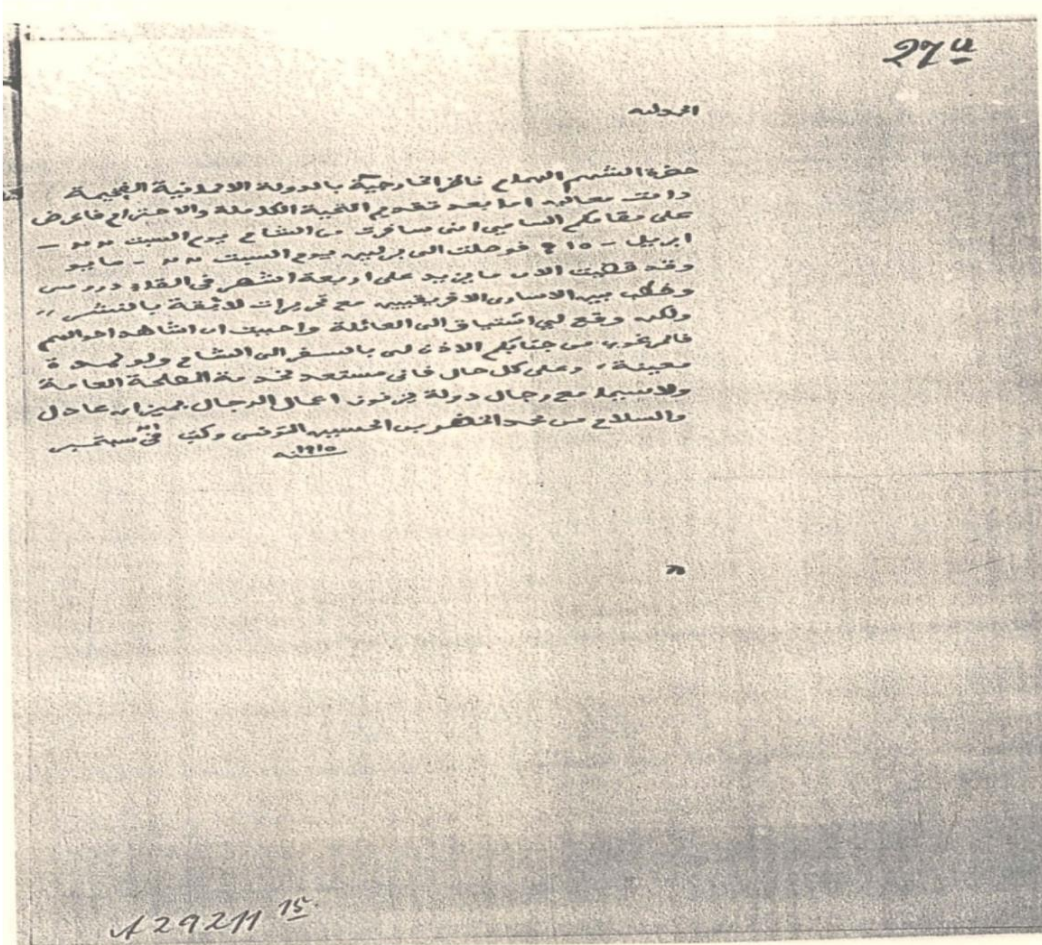 27 a
الحمد لله
حضرة الشهم الهمام ناظر الخارجية بالدولة الالمانية الفخيمة
دامت معاليه اما بعد تقديم التحية الكاملة والاحترام فاعرض
على مقامكم السامي انى سافرت من الشام يوم السبت
ابريل - ١٥ فوصلت الى برلين يوم السبت - مايو
وقد قضيت الان ما يزيد على اربعة اشهر فى القاء دروس
وخطب بين الاسارى الافريقيين مع تحريرات لائقة بالنشر ,,
ولكن وقع لي اشتياق الى العائلة واحببت ان اشاهد احوالهم
من جنابكم الاذن لى بالسفر الى الشام ولو لمدة
معينة ، وعلى كل حال فانى مستعد لخدمة المصلحة العامة
ولا سيما مع رجال دولة يزنون اعمال الرجال بميزان عادل
والسلام من محمد الخضر بن الحسين التونسى وكتب فى سبتمبر
سنه ١٩١٥
A 29211 15.